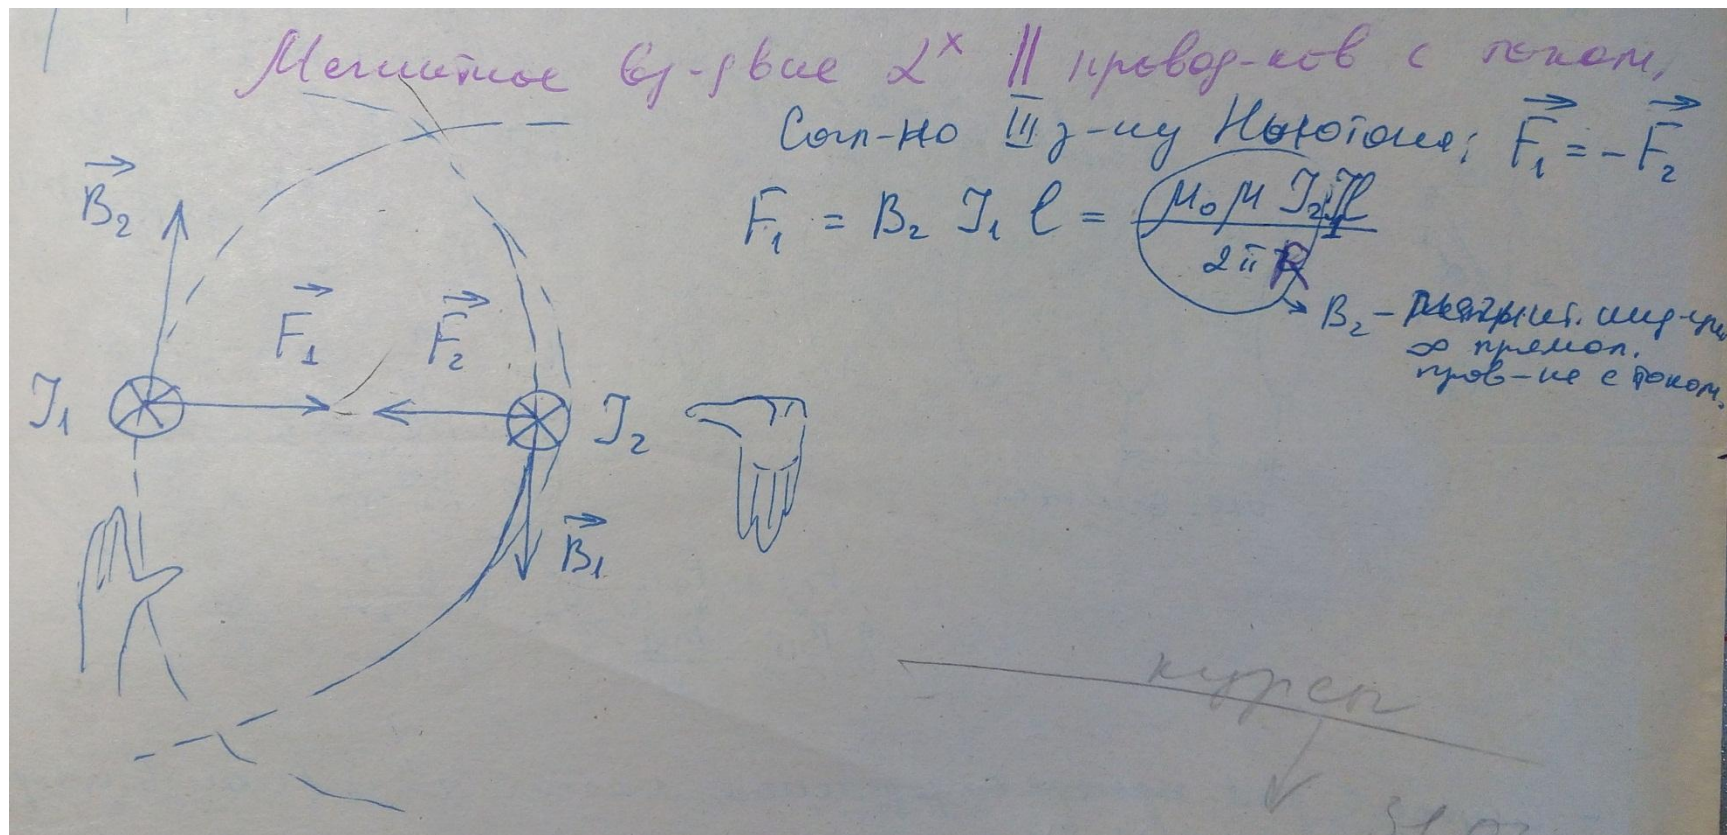 Магнитное вз-двие 2ˣ || провод-ков с током.
Согл-но III з-ну Ньютона: F₁ = -F₂
F₁ = B₂ I₁ l = μ₀ μ I₂ I₁ l / 2π R
B₂ - магнит. инд-ция
∞ прямол.
пров-ка с током.
B₂
F₁ F₂
I₁ I₂
B₁
курсы